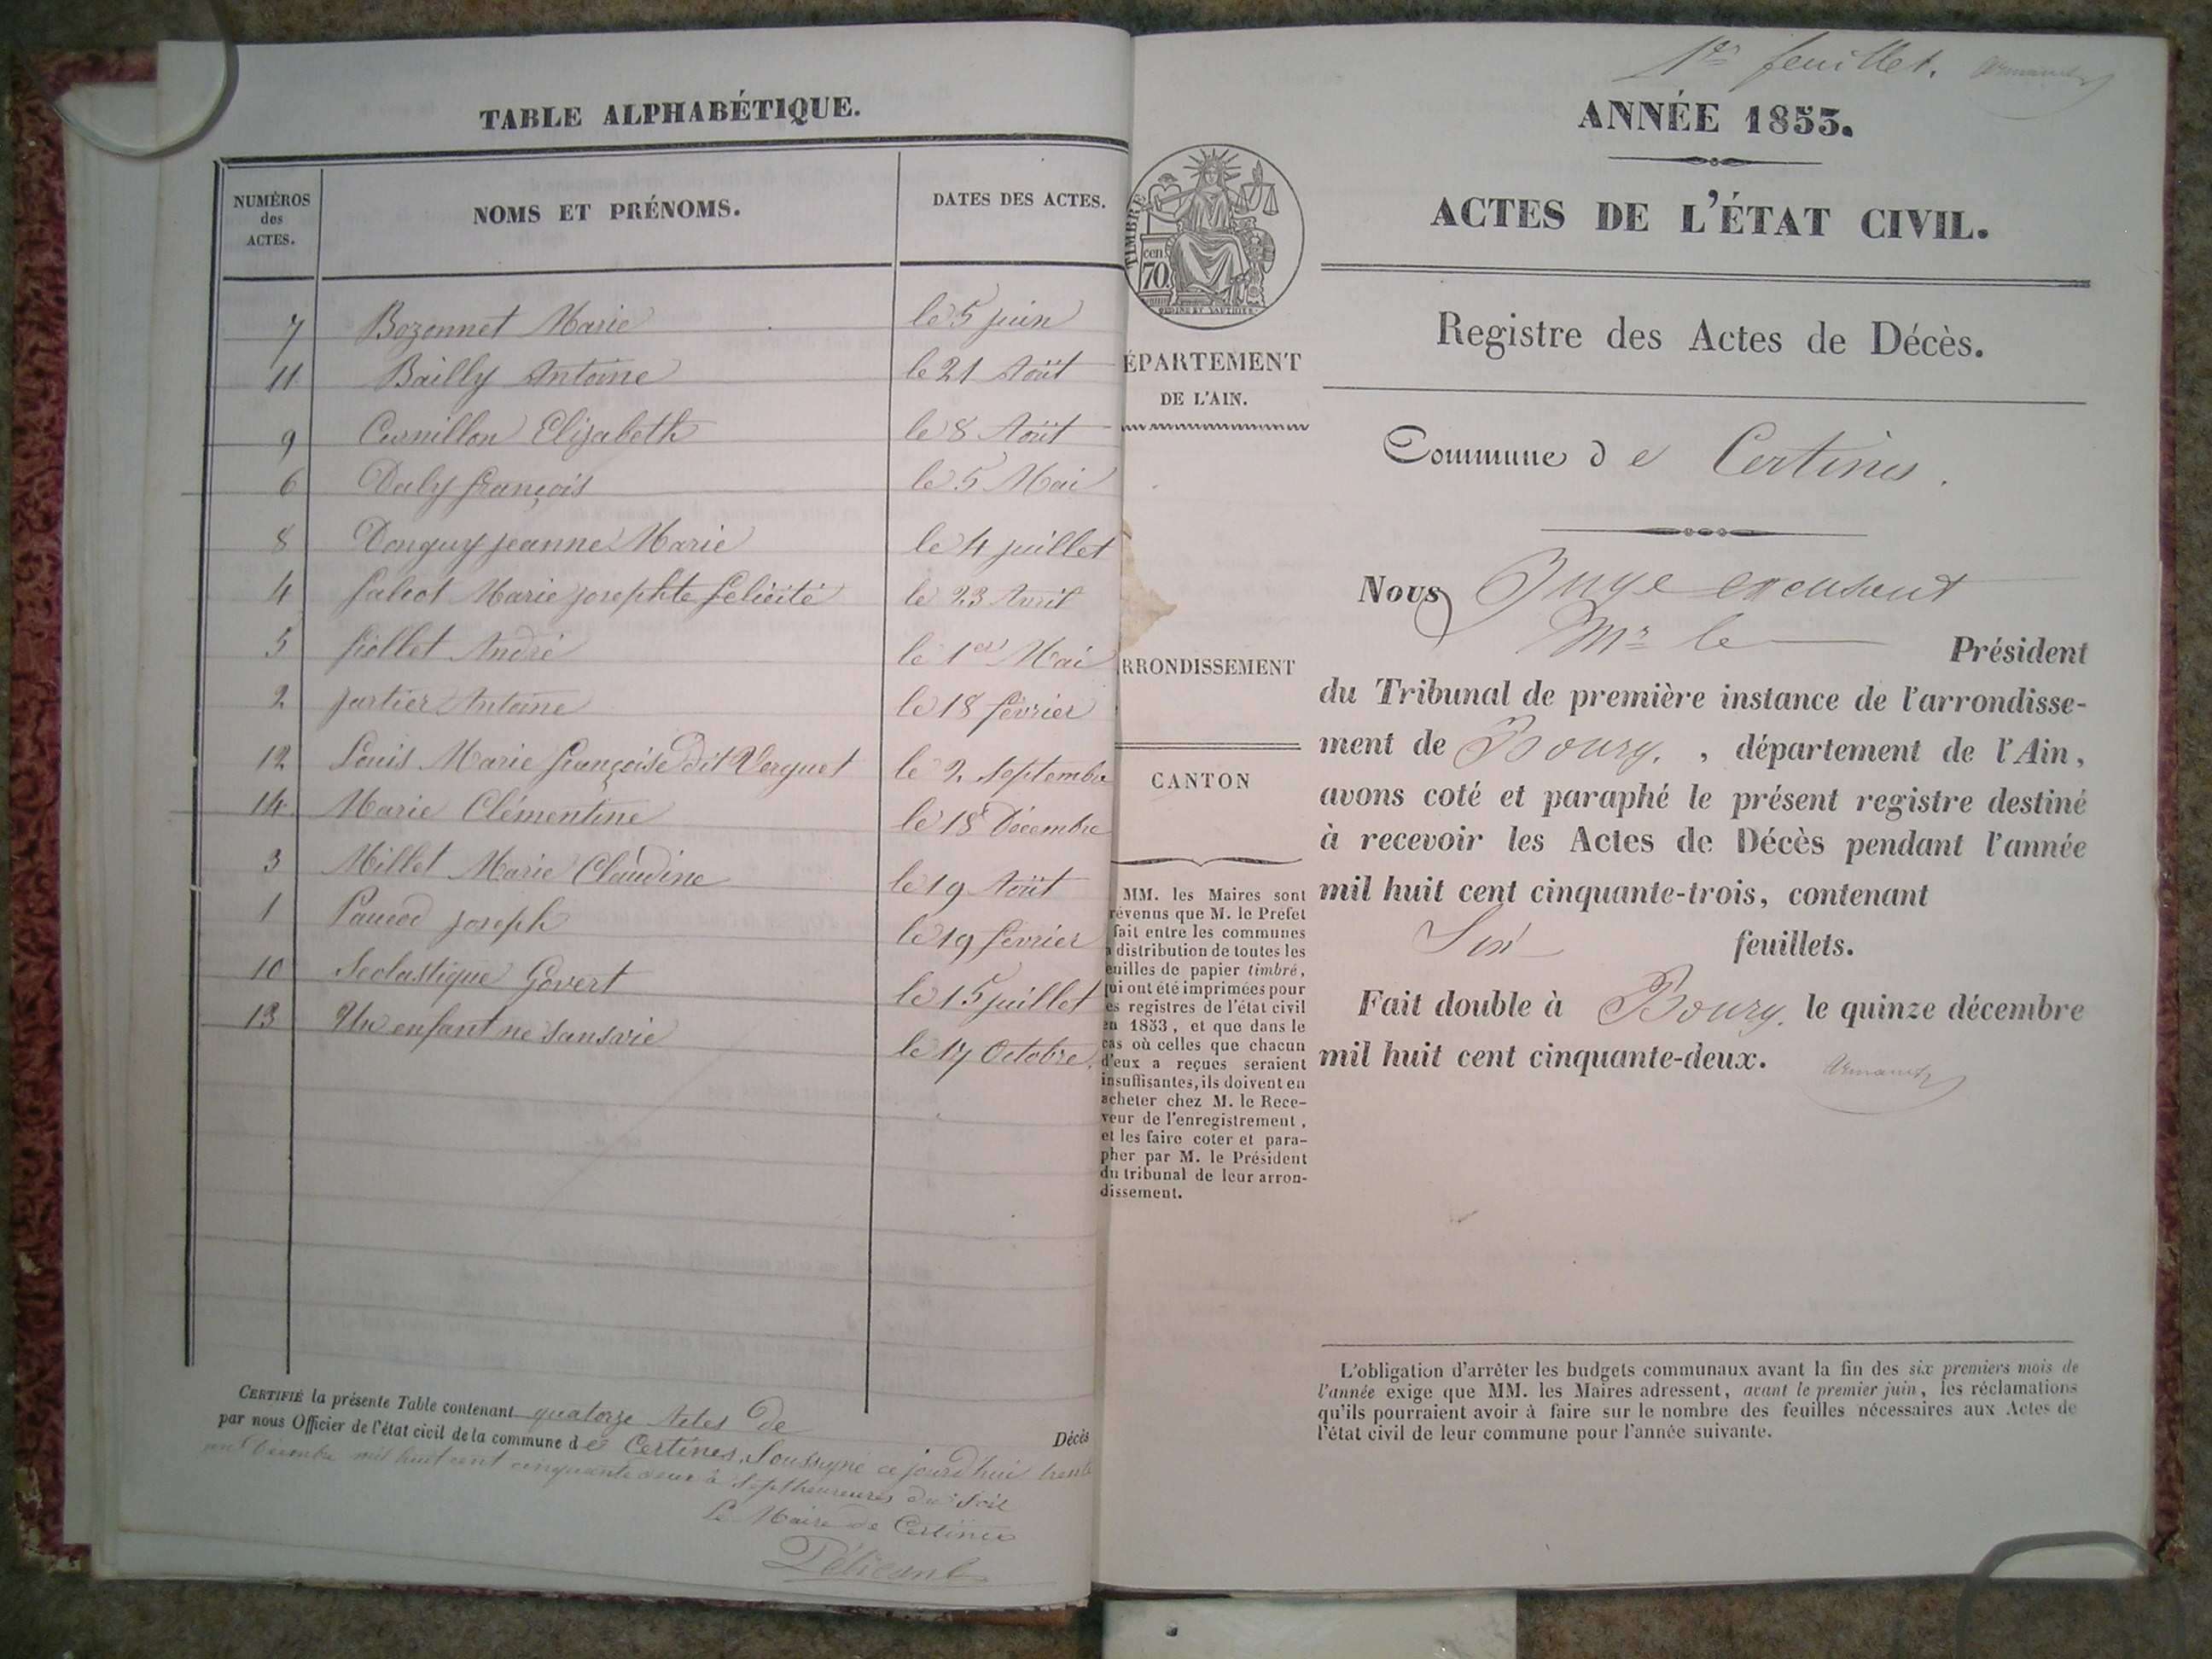 TABLE ALPHABÉTIQUE.
NUMÉROS des ACTES. NOMS ET PRÉNOMS. DATES DES ACTES.
7 Bozonnet Marie le 5 juin
11 Bailly Antoine le 21 Août
9 Curnillon Elizabeth le 8 Août
6 Daly françois le 5 Mai
8 Donguy jeanne Marie le 4 juillet
4 Marie josephte félicité le 23 Avril
5 fiollet André le 1er Mai
2 jartier Antoine le 18 février
12 Louis Marie françoise dit Verguet le 2 Septembre
14 Marie Clémentine le 18 Décembre
3 Millet Marie Claudine le 19 Août
1 joseph le 19 février
10 Scolastique Govert le 15 juillet
13 Un enfant né sans vie le 17 Octobre
CERTIFIÉ la présente Table contenant quatorze Actes de Décès
par nous Officier de l'état civil de la commune de Certines, Soussigné ce jourd'hui trente
un Décembre mil huit cent cinquante deux à Sept heureures du Soir
Le Maire de Certines
1er feuillet.
ANNÉE 1853.
ACTES DE L'ÉTAT CIVIL.
TIMBRE
cen. 70
Registre des Actes de Décès.
ÉPARTEMENT
DE L'AIN.
Commune de Certines.
Nous Juge excusant
Mr le Président
du Tribunal de première instance de l'arrondisse-
ment de Bourg, département de l'Ain,
avons coté et paraphé le présent registre destiné
à recevoir les Actes de Décès pendant l'année
mil huit cent cinquante-trois, contenant
Six feuillets.
Fait double à Bourg, le quinze décembre
mil huit cent cinquante-deux.
RRONDISSEMENT
CANTON
MM. les Maires sont
révenus que M. le Préfet
fait entre les communes
a distribution de toutes les
euilles de papier timbré,
ui ont été imprimées pour
es registres de l'état civil
en 1853, et que dans le
cas où celles que chacun
d'eux a reçues seraient
insuffisantes, ils doivent en
acheter chez M. le Rece-
veur de l'enregistrement,
et les faire coter et para-
pher par M. le Président
du tribunal de leur arron-
dissement.
L'obligation d'arrêter les budgets communaux avant la fin des six premiers mois de
l'année exige que MM. les Maires adressent, avant le premier juin, les réclamations
qu'ils pourraient avoir à faire sur le nombre des feuilles nécessaires aux Actes de
l'état civil de leur commune pour l'année suivante.